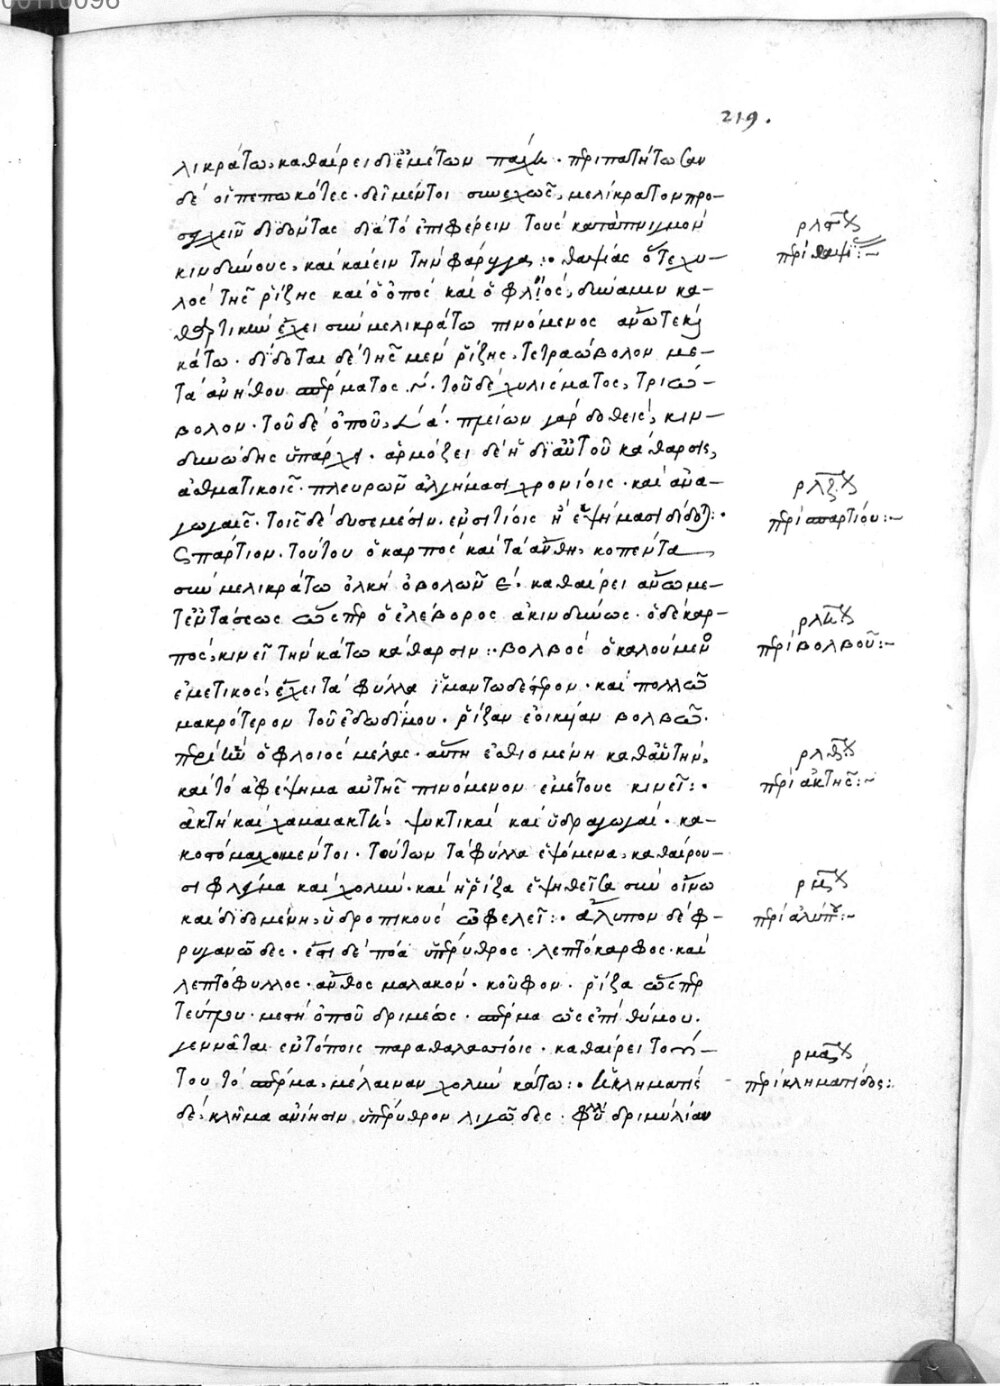 219.
λικράτω, καθαίρει δι' ἐμέτων παχέα. περιπατήτωσαν
δὲ οἱ πεπωκότες. δεῖ μέντοι συνεχῶς, μελίκρατον προ-
σχεῖν διδόντας διὰ τὸ ἐπιφέρειν τοὺς κατάπνιγμὸν
κινδύνους, καὶ καίειν τὴν φάρυγγα:· θαψίας ὅ τε χυ-
λὸς τῆς ῥίζης καὶ ὁ ὀπὸς καὶ ὁ φλοιὸς, δύναμιν κα-
θαρτικὴν ἔχει σὺν μελικράτω πινόμενος ἄνω τε καὶ
κάτω. δίδοται δὲ τῆς μὲν ῥίζης, τετραώβολον με-
τὰ ἀνήθου σπέρματος. τοῦ δὲ χυλίσματος, τριώ-
βολον. τοῦ δὲ ὀποῦ, ά. πλείων γὰρ δοθεὶς, κιν-
δυνώδης ὑπάρχει. ἁρμόζει δὲ ἡ δι' αὐτοῦ κάθαρσις,
ἀσθματικοῖς. πλευρῶν ἀλγήμασι χρονίοις. καὶ ἀνα-
γωγαῖς. τοῖς δὲ δυσεμέσιν. ἐν σιτίοις ἢ ἑψήμασι δίδοται:·
Σπάρτιον. τούτου ὁ καρπὸς καὶ τὰ ἄνθη, κοπέντα
σὺν μελικράτω ὁλκὴ ὀβολῶν ε. καθαίρει ἄνω με-
τ' ἐντάσεως ὥσπερ ὁ ἐλέβορος ἀκινδύνως. ὁ δὲ καρ-
πὸς, κινεῖ τὴν κάτω κάθαρσιν:· βολβὸς ὁ καλούμενος
ἐμετικὸς, ἔχει τὰ φύλλα ἱμαντωδέστερον. καὶ πολλῶ
μακρότερον τοῦ ἐδωδίμου. ῥίζαν ἐοικυῖαν βολβῶ.
περὶ ἣν ὁ φλοιὸς μέλας. αὕτη ἐσθιομένη καθ' αὑτὴν,
καὶ τὸ ἀφέψημα αὐτῆς πινόμενον ἐμέτους κινεῖ:·
ἀκτὴ καὶ χαμαιακτὴ, ψυκτικαὶ καὶ ὑδραγωγαί. κα-
κοστόμαχοι μέντοι. τούτων τὰ φύλλα ἑψόμενα, καθαίρου-
σι φλέγμα καὶ χολήν. καὶ ἡ ῥίζα ἑψηθεῖσα σὺν οἴνω
καὶ διδομένη, ὑδροπικοὺς ὠφελεῖ:· ἄλυπον δὲ φ-
ρυγανῶδες. ἔστι δὲ πόα ὑπέρυθρος. λεπτόκαρφος. καὶ
λεπτόφυλλος. ἄνθος μαλακόν. κοῦφον. ῥίζα ὥσπερ
τεύτλου. μεστὴ ὀποῦ δριμέως. σπέρμα ὡς ἐπιθύμου.
γεννᾶται ἐν τόποις παραθαλασσίοις. καθαίρει
του τὸ σπέρμα, μέλαιναν χολὴν κάτω:· ἡ κληματὶς
δὲ, κλῆμα ἀνίησιν ὑπέρυθρον λιγῶδες. φύλλον δριμύλίαν
ρλζ
περὶ θαψί:~
ρλζ
περὶ σπαρτίου:~
ρλη
περὶ βολβοῦ:~
ρλθ
περὶ ἀκτῆς:~
ρμ
περὶ ἀλύπου:~
ρμα
περὶ κληματίδος: